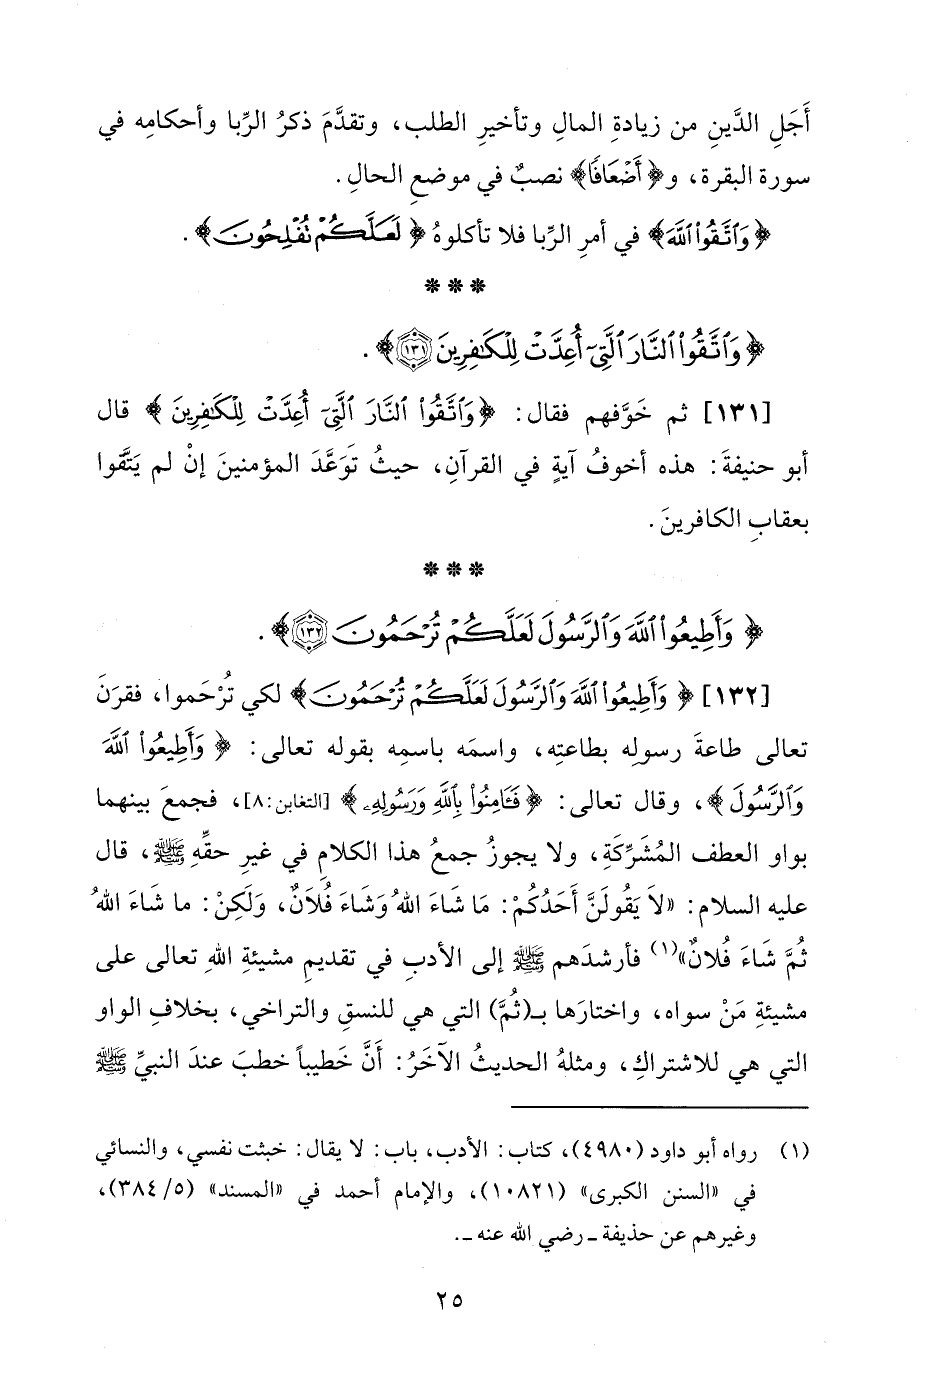 أَجَلِ الدَّينِ من زيادةِ المالِ وتأخيرِ الطلب، وتقدَّمَ ذكرُ الرِّبا وأحكامِه في
سورة البقرة، و﴿أَضْعَافًا﴾ نصبٌ في موضعِ الحالِ.
﴿وَاتَّقُوا اللَّهَ﴾ في أمرِ الرِّبا فلا تأكلوهُ ﴿لَعَلَّكُمْ تُفْلِحُونَ﴾.
* * *
﴿وَاتَّقُوا النَّارَ الَّتِي أُعِدَّتْ لِلْكَافِرِينَ ١٣١﴾.
[١٣١] ثم خَوَّفهم فقال: ﴿وَاتَّقُوا النَّارَ الَّتِي أُعِدَّتْ لِلْكَافِرِينَ﴾ قال
أبو حنيفةَ: هذه أخوفُ آيةٍ في القرآنِ، حيثُ تَوَعَّدَ المؤمنينَ إنْ لم يَتَّقوا
بعقابِ الكافرينَ.
* * *
﴿وَأَطِيعُوا اللَّهَ وَالرَّسُولَ لَعَلَّكُمْ تُرْحَمُونَ ١٣٢﴾.
[١٣٢] ﴿وَأَطِيعُوا اللَّهَ وَالرَّسُولَ لَعَلَّكُمْ تُرْحَمُونَ﴾ لكي تُرْحَموا، فقرنَ
تعالى طاعةَ رسولِه بطاعتِه، واسمَه باسمِه بقوله تعالى: ﴿وَأَطِيعُوا اللَّهَ
وَالرَّسُولَ﴾، وقال تعالى: ﴿فَآمِنُوا بِاللَّهِ وَرَسُولِهِ﴾ [التغابن: ٨]، فجمعَ بينهما
بواو العطف المُشَرِّكَةِ، ولا يجوزُ جمعُ هذا الكلامِ في غيرِ حقِّهِ ﷺ، قال
عليه السلام: «لاَ يَقُولَنَّ أَحَدُكُمْ: مَا شَاءَ اللهُ وَشَاءَ فُلاَنٌ، وَلَكِنْ: ما شَاءَ اللهُ
ثُمَّ شَاءَ فُلانٌ»(١) فأرشدَهم ﷺ إلى الأدبِ في تقديمِ مشيئةِ اللهِ تعالى على
مشيئةِ مَنْ سواه، واختارَها بـ(ثُمَّ) التي هي للنسقِ والتراخي، بخلافِ الواو
التي هي للاشتراكِ، ومثلهُ الحديثُ الآخَرُ: أَنَّ خَطيباً خطبَ عندَ النبيِّ ﷺ
(١) رواه أبو داود (٤٩٨٠)، كتاب: الأدب، باب: لا يقال: خبثت نفسي، والنسائي
في «السنن الكبرى» (١٠٨٢١)، والإمام أحمد في «المسند» (٥/ ٣٨٤)،
وغيرهم عن حذيفة ـ رضي الله عنه ـ.
٢٥